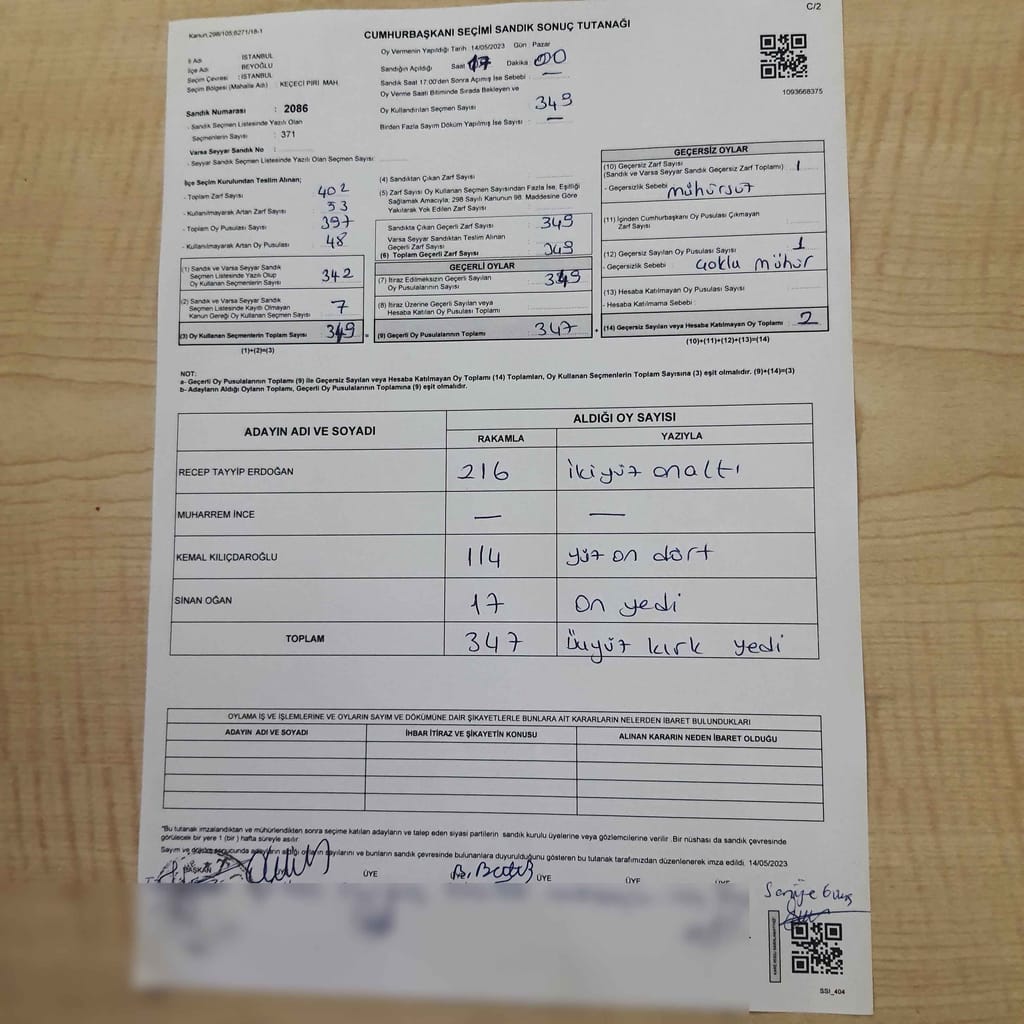 C/2
Kanun.298/105;6271/18-1
CUMHURBAŞKANI SEÇİMİ SANDIK SONUÇ TUTANAĞI
İl Adı : İSTANBUL
İlçe Adı : BEYOĞLU
Seçim Çevresi : İSTANBUL
Seçim Bölgesi (Mahalle Adı) : KEÇECİ PİRİ MAH
Oy Vermenin Yapıldığı Tarih : 14/05/2023 Gün : Pazar
Sandığın Açıldığı Saat 17 Dakika : 00
Sandık Saat 17:00'den Sonra Açımış İse Sebebi : —
Oy Verme Saati Bitiminde Sırada Bekleyen ve
Oy Kullandırılan Seçmen Sayısı 349
Birden Fazla Sayım Döküm Yapılmış İse Sayısı : —
1093668375
Sandık Numarası : 2086
- Sandık Seçmen Listesinde Yazılı Olan
Seçmenlerin Sayısı : 371
Varsa Seyyar Sandık No :
- Seyyar Sandık Seçmen Listesinde Yazılı Olan Seçmen Sayısı:
İlçe Seçim Kurulundan Teslim Alınan;
- Toplam Zarf Sayısı 402
- Kullanılmayarak Artan Zarf Sayısı 53
- Toplam Oy Pusulası Sayısı 397
- Kullanılmayarak Artan Oy Pusulası 48
(1) Sandık ve Varsa Seyyar Sandık
Seçmen Listesinde Yazılı Olup
Oy Kullanan Seçmenlerin Sayısı 342
(2) Sandık ve Varsa Seyyar Sandık
Seçmen Listesinde Kayıtlı Olmayan
Kanun Gereği Oy Kullanan Seçmen Sayısı 7
(3) Oy Kullanan Seçmenlerin Toplam Sayısı 349 =
(1)+(2)=(3)
(4) Sandıktan Çıkan Zarf Sayısı
(5) Zarf Sayısı Oy Kullanan Seçmen Sayısından Fazla İse, Eşitliği
Sağlamak Amacıyla; 298 Sayılı Kanunun 98. Maddesine Göre
Yakılarak Yok Edilen Zarf Sayısı
Sandıkta Çıkan Geçerli Zarf Sayısı 349
Varsa Seyyar Sandıktan Teslim Alınan
Geçerli Zarf Sayısı
(6) Toplam Geçerli Zarf Sayısı 349
GEÇERLİ OYLAR
(7) İtiraz Edilmeksizin Geçerli Sayılan
Oy Pusulalarının Sayısı 349
(8) İtiraz Üzerine Geçerli Sayılan veya
Hesaba Katılan Oy Pusulası Toplamı
(9) Geçerli Oy Pusulalarının Toplamı 347 +
GEÇERSİZ OYLAR
(10) Geçersiz Zarf Sayısı
(Sandık ve Varsa Seyyar Sandık Geçersiz Zarf Toplamı) 1
- Geçersizlik Sebebi mühürsüz
(11) İçinden Cumhurbaşkanı Oy Pusulası Çıkmayan
Zarf Sayısı
(12) Geçersiz Sayılan Oy Pusulası Sayısı 1
- Geçersizlik Sebebi çoklu mühür
(13) Hesaba Katılmayan Oy Pusulası Sayısı
- Hesaba Katılmama Sebebi :
(14) Geçersiz Sayılan veya Hesaba Katılmayan Oy Toplamı 2
(10)+(11)+(12)+(13)=(14)
NOT:
a- Geçerli Oy Pusulalarının Toplamı (9) ile Geçersiz Sayılan veya Hesaba Katılmayan Oy Toplamı (14) Toplamları, Oy Kullanan Seçmenlerin Toplam Sayısına (3) eşit olmalıdır. (9)+(14)=(3)
b- Adayların Aldığı Oyların Toplamı, Geçerli Oy Pusulalarının Toplamına (9) eşit olmalıdır.
ADAYIN ADI VE SOYADI ALDIĞI OY SAYISI
RAKAMLA YAZIYLA
RECEP TAYYİP ERDOĞAN 216 ikiyüz onaltı
MUHARREM İNCE — —
KEMAL KILIÇDAROĞLU 114 yüz on dört
SİNAN OĞAN 17 on yedi
TOPLAM 347 Üçyüz kırk yedi
OYLAMA İŞ VE İŞLEMLERİNE VE OYLARIN SAYIM VE DÖKÜMÜNE DAİR ŞİKAYETLERLE BUNLARA AİT KARARLARIN NELERDEN İBARET BULUNDUKLARI
ADAYIN ADI VE SOYADI İHBAR İTİRAZ VE ŞİKAYETİN KONUSU ALINAN KARARIN NEDEN İBARET OLDUĞU
"Bu tutanak imzalandıktan ve mühürlendikten sonra seçime katılan adayların ve talep eden siyasi partilerin sandık kurulu üyelerine veya gözlemcilerine verilir. Bir nüshası da sandık çevresinde
görülecek bir yere 1 (bir) hafta süreyle asılır.
Sayım ve döküm sonucunda adayların aldığı oyların sayılarını ve bunların sandık çevresinde bulunanlara duyurulduğunu gösteren bu tutanak tarafımızdan düzenlenerek imza edildi. 14/05/2023
BAŞKAN ÜYE ÜYE ÜYE ÜYE
SSI_404